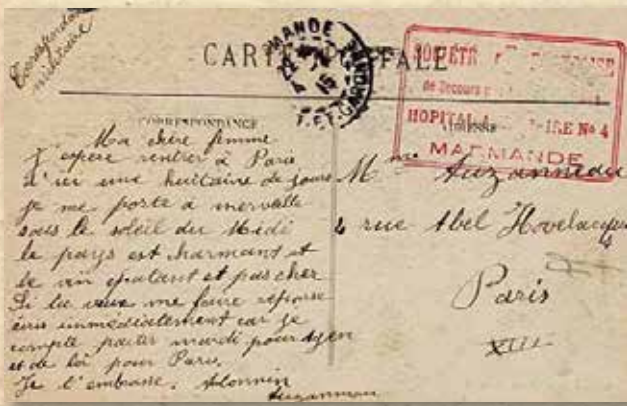 Correspondance
militaire
CARTE POSTALE
MANDE
22
4
15
T-ET-GARONNE
SOCIÉTÉ
de Secours
HOPITAL No 4
MARMANDE
CORRESPONDANCE
ADRESSE
Ma chère femme
J'espère rentrer à Paris
d'ici une huitaine de jours
je me porte a merveille
sous le soleil du Midi
le pays est charmant et
le vin épatant et pas cher
Si tu veux me faire réponse
écris immédiatement car je
compte partir mardi pour Agen
et de là pour Paris.
Je t'embrasse.
Auzanneau
Mme Auzanneau
rue Abel Hovelacque
Paris
XIII